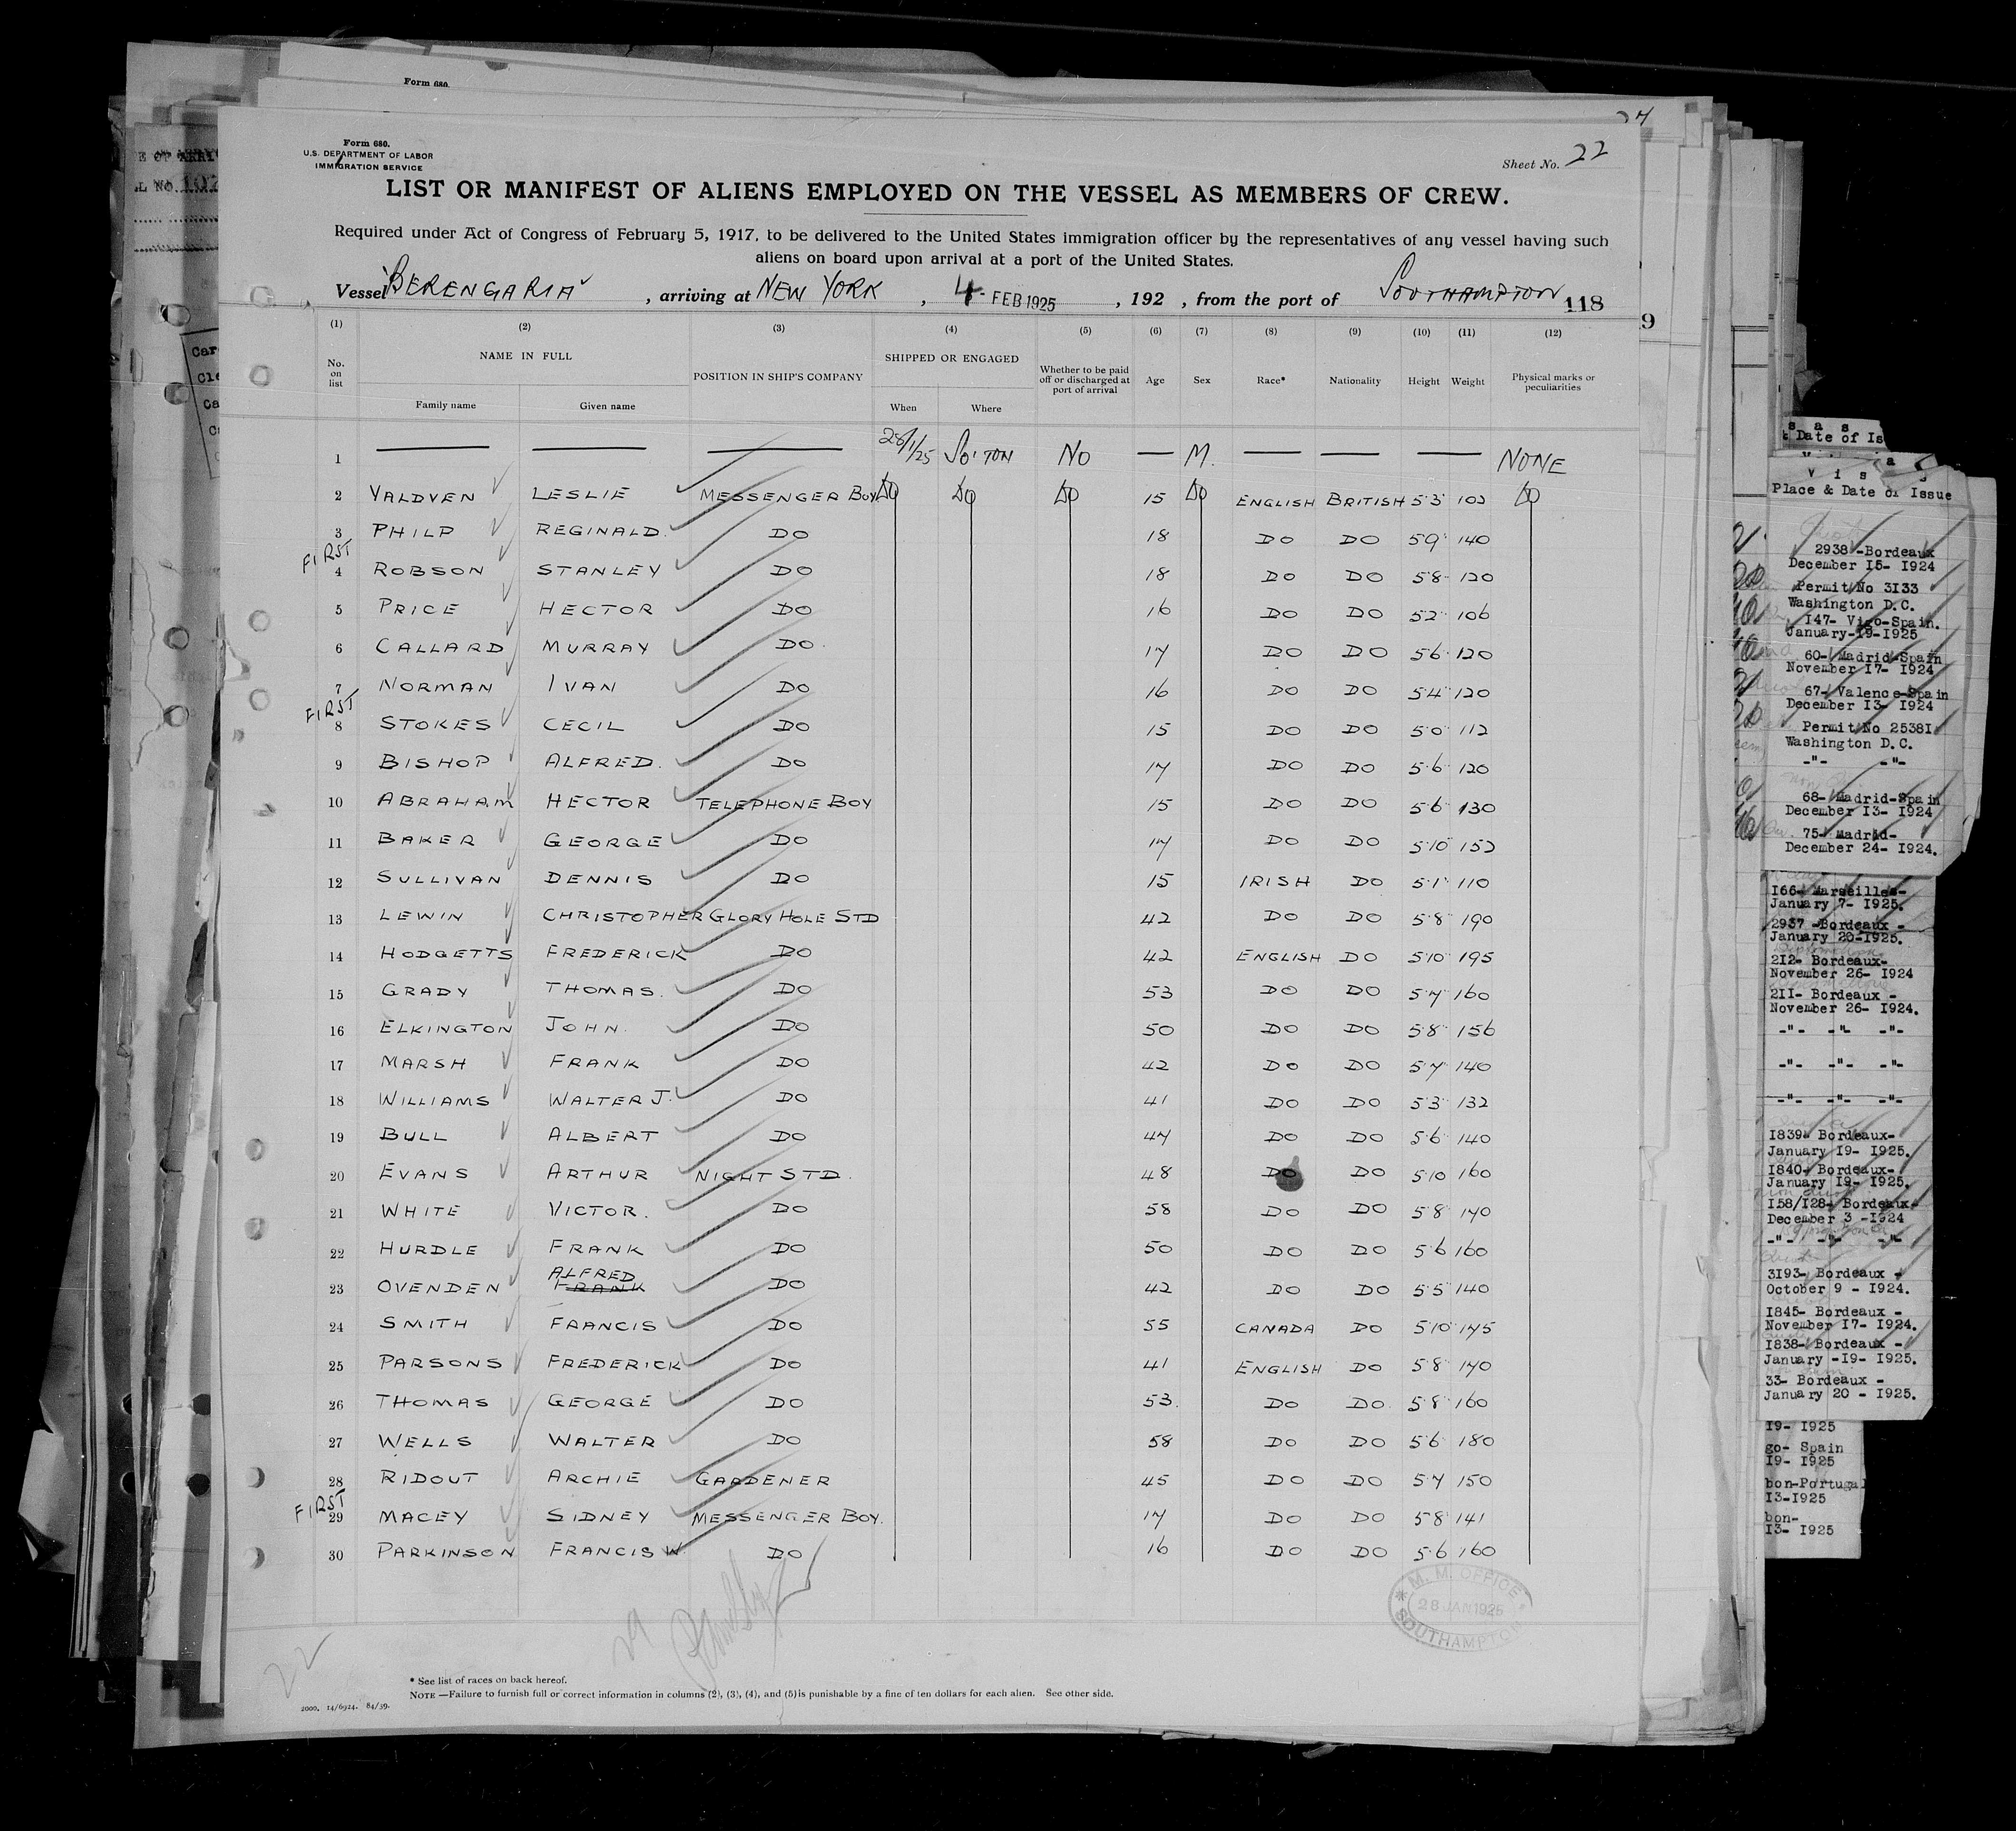 Form 680.
Form 680.
U.S. DEPARTMENT OF LABOR
IMMIGRATION SERVICE
Sheet No. 22
LIST OR MANIFEST OF ALIENS EMPLOYED ON THE VESSEL AS MEMBERS OF CREW.
Required under Act of Congress of February 5, 1917, to be delivered to the United States immigration officer by the representatives of any vessel having such
aliens on board upon arrival at a port of the United States.
Vessel BERENGARIA , arriving at NEW YORK , 4 FEB 1925 , 192 , from the port of SOUTHAMPTON 118
(1) (2) (3) (4) (5) (6) (7) (8) (9) (10) (11) (12)
No. on list NAME IN FULL Family name Given name POSITION IN SHIP'S COMPANY SHIPPED OR ENGAGED When Where Whether to be paid off or discharged at port of arrival Age Sex Race* Nationality Height Weight Physical marks or peculiarities
1 — — — 28/1/25 So'TON NO — M. — — — NONE
2 YALDVEN LESLIE MESSENGER BOY DO DO DO 15 DO ENGLISH BRITISH 5'3 102 DO
3 PHILP REGINALD. DO 18 DO DO 5'9 140
FIRST
4 ROBSON STANLEY DO 18 DO DO 5'8 120
5 PRICE HECTOR DO 16 DO DO 5'2 106
6 CALLARD MURRAY DO 17 DO DO 5'6 120
7 NORMAN IVAN DO 16 DO DO 5'4 120
FIRST
8 STOKES CECIL DO 15 DO DO 5'0 112
9 BISHOP ALFRED. DO 17 DO DO 5'6 120
10 ABRAHAM HECTOR TELEPHONE BOY 15 DO DO 5'6 130
11 BAKER GEORGE DO 17 DO DO 5'10 152
12 SULLIVAN DENNIS DO 15 IRISH DO 5'1 110
13 LEWIN CHRISTOPHER GLORY HOLE STD 42 DO DO 5'8 190
14 HODGETTS FREDERICK DO 42 ENGLISH DO 5'10 195
15 GRADY THOMAS. DO 53 DO DO 5'7 160
16 ELKINGTON JOHN. DO 50 DO DO 5'8 156
17 MARSH FRANK DO 42 DO DO 5'7 140
18 WILLIAMS WALTER J. DO 41 DO DO 5'3 132
19 BULL ALBERT DO 47 DO DO 5'6 140
20 EVANS ARTHUR NIGHT STD. 48 DO DO 5'10 160
21 WHITE VICTOR. DO 58 DO DO 5'8 170
22 HURDLE FRANK DO 50 DO DO 5'6 160
23 OVENDEN ALFRED FRANK DO 42 DO DO 5'5 140
24 SMITH FRANCIS DO 55 CANADA DO 5'10 175
25 PARSONS FREDERICK DO 41 ENGLISH DO 5'8 170
26 THOMAS GEORGE DO 53. DO DO 5'8 160
27 WELLS WALTER DO 58 DO DO 5'6 180
28 RIDOUT ARCHIE GARDENER 45 DO DO 5'7 150
FIRST
29 MACEY SIDNEY MESSENGER BOY. 17 DO DO 5'8 141
30 PARKINSON FRANCIS W. DO 16 DO DO 5'6 160
M. M. OFFICE
28 JAN 1925
SOUTHAMPTON
29
22
* See list of races on back hereof.
NOTE —Failure to furnish full or correct information in columns (2), (3), (4), and (5) is punishable by a fine of ten dollars for each alien. See other side.
2000. 14/6924. 84/39.
9
Place & Date of Issue
2938 -Bordeaux
December 15- 1924
Permit No 3133
Washington D.C.
147- Vigo-Spain.
January-19-1925
60- Madrid-Spain
November 17- 1924
67- Valence-Spain
December 13- 1924
Permit No 25381
Washington D.C.
-"- -"-
68- Madrid-Spain
December 13- 1924
75- Madrid-
December 24- 1924.
166- Marseilles-
January 7- 1925.
2937 -Bordeaux -
January 20-1925.
212- Bordeaux-
November 26- 1924
211- Bordeaux -
November 26- 1924.
-"- -"- -"-
-"- -"- -"-
-"- -"- -"-
1839- Bordeaux-
January 19- 1925.
1840- Bordeaux-
January 19- 1925.
158/128- Bordeaux-
December 3 -1924
-"- -"- -"-
3193- Bordeaux -
October 9 - 1924.
1845- Bordeaux -
November 17- 1924.
1838- Bordeaux -
January -19- 1925.
33- Bordeaux -
January 20 - 1925.
19- 1925
go- Spain
19- 1925
bon-Portugal
13-1925
bon-
13- 1925